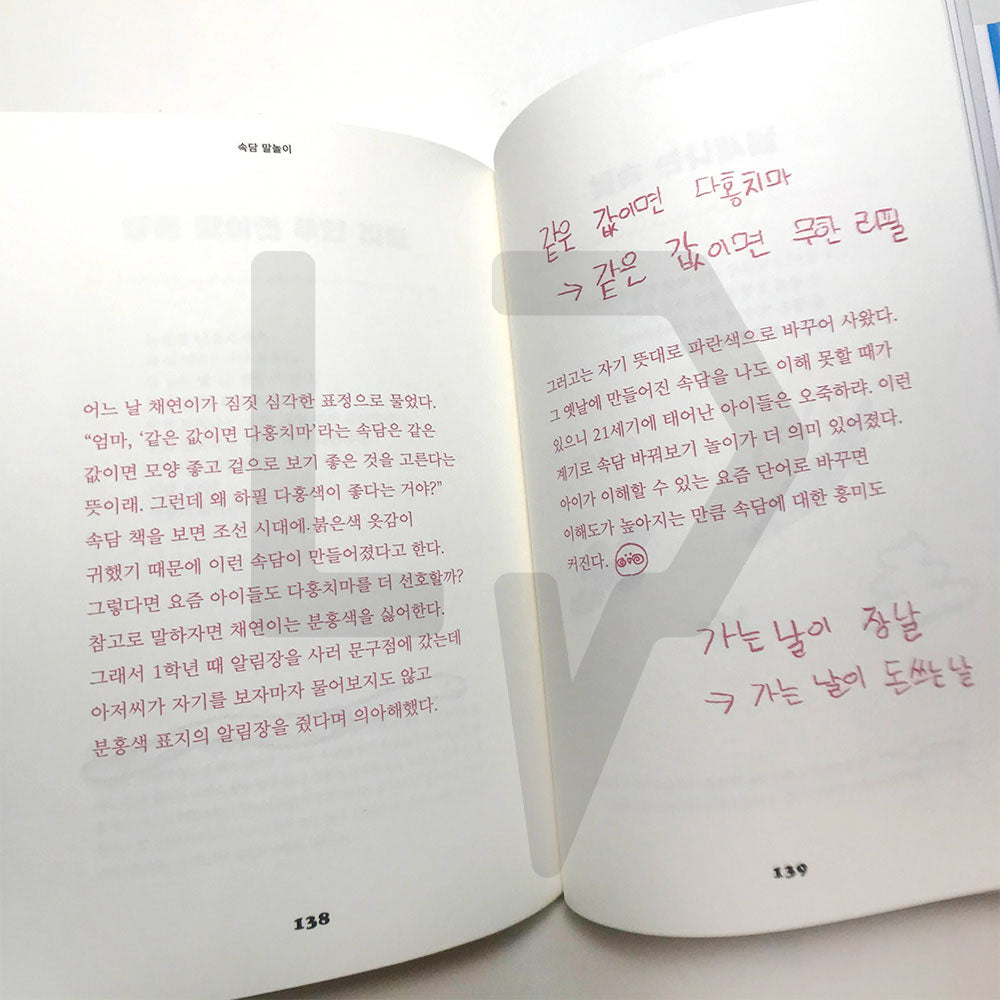 속담 말놀이
어느 날 채연이가 짐짓 심각한 표정으로 물었다.
“엄마, ‘같은 값이면 다홍치마’라는 속담은 같은
값이면 모양 좋고 겉으로 보기 좋은 것을 고른다는
뜻이래. 그런데 왜 하필 다홍색이 좋다는 거야?”
속담 책을 보면 조선 시대에 붉은색 옷감이
귀했기 때문에 이런 속담이 만들어졌다고 한다.
그렇다면 요즘 아이들도 다홍치마를 더 선호할까?
참고로 말하자면 채연이는 분홍색을 싫어한다.
그래서 1학년 때 알림장을 사러 문구점에 갔는데
아저씨가 자기를 보자마자 물어보지도 않고
분홍색 표지의 알림장을 줬다며 의아해했다.
138
같은 값이면 다홍치마
→ 같은 값이면 무한 리필
그러고는 자기 뜻대로 파란색으로 바꾸어 사왔다.
그 옛날에 만들어진 속담을 나도 이해 못할 때가
있으니 21세기에 태어난 아이들은 오죽하랴. 이런
계기로 속담 바꿔보기 놀이가 더 의미 있어졌다.
아이가 이해할 수 있는 요즘 단어로 바꾸면
이해도가 높아지는 만큼 속담에 대한 흥미도
커진다.
가는 날이 장날
→ 가는 날이 돈쓰는 날
139